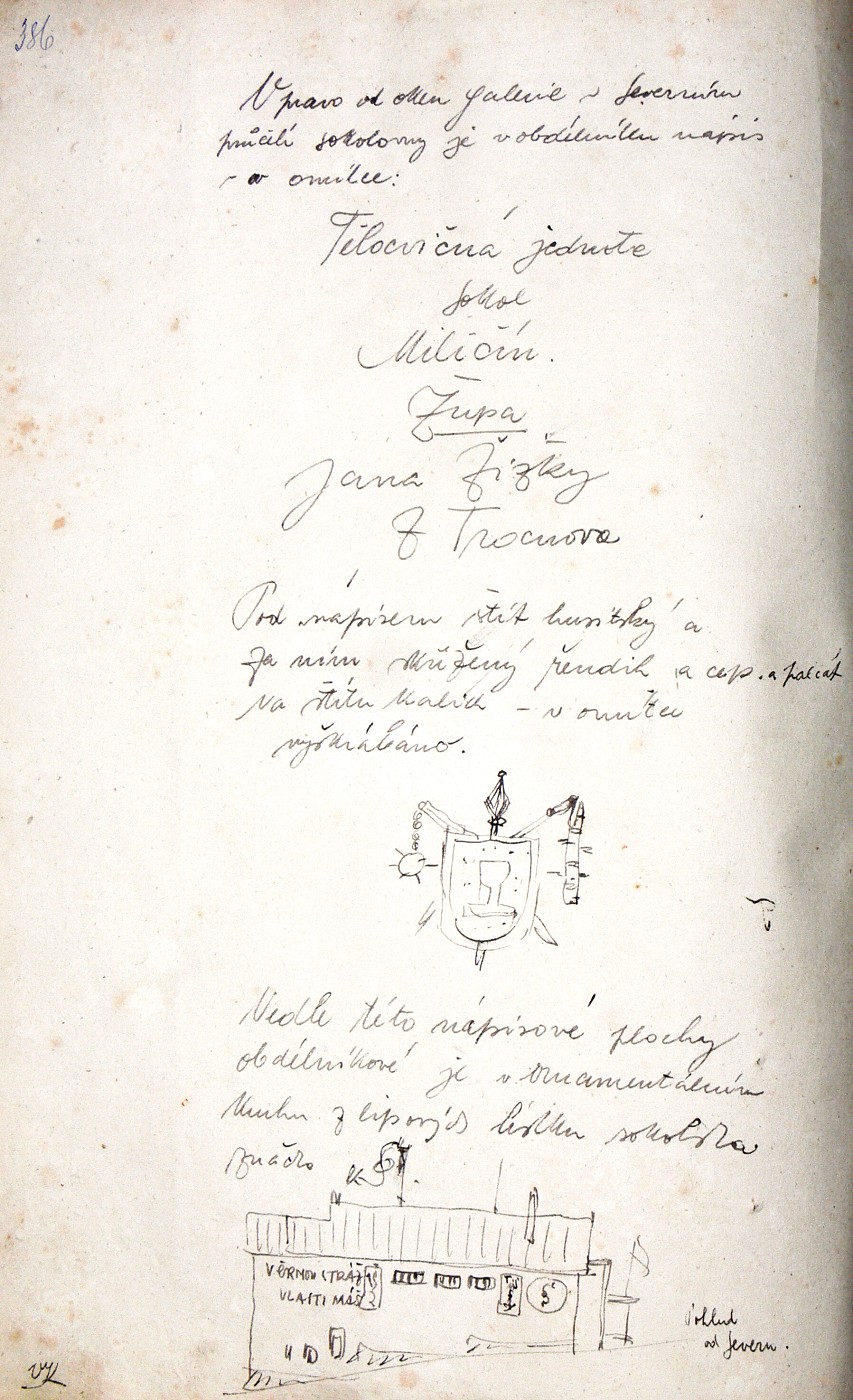 386
Vpravo od oken galerie v severním
průčelí sokolovny je v obdélníku nápis
- v omítce:
Tělocvičná jednota
Sokol
Miličín.
Župa
Jana Žižky
z Trocnova
Pod nápisem štít husitský a
za ním zkřížený řemdih a cep. a palcát
Na štítu kalich - v omítce
vyškrábáno.
Vedle této nápisové plochy
obdélníkové je v ornamentálním
kruhu z lipových lístků sokolská
značka
VĚRNOU STRÁŽ
VLASTI MÁŠ
Pohled
od severu.